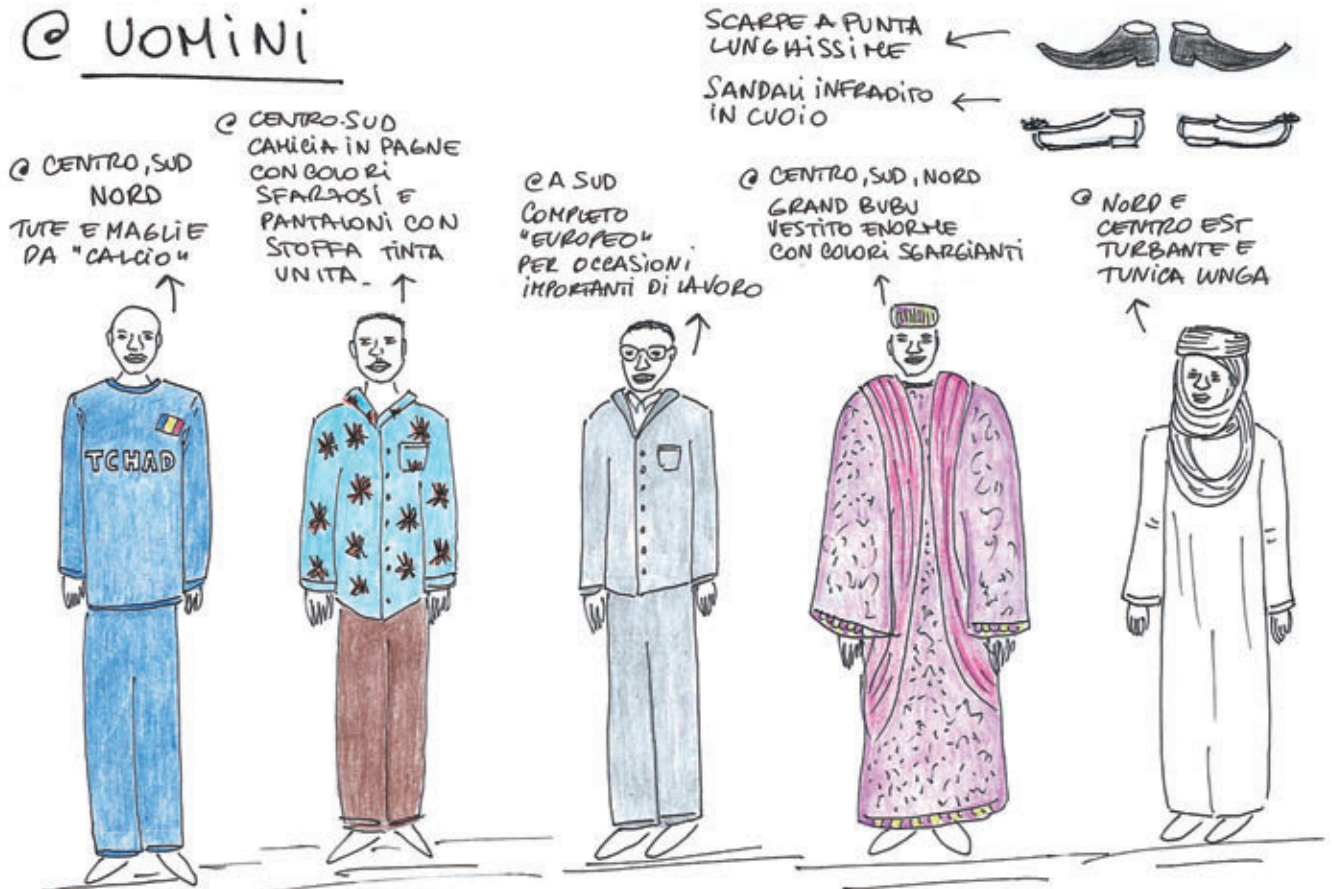 @ UOMINI
SCARPE A PUNTA
LUNGHISSIME
SANDALI INFRADITO
IN CUOIO
@ CENTRO, SUD
NORD
TUTE E MAGLIE
DA "CALCIO"
@ CENTRO-SUD
CAMICIA IN PAGNE
CON COLORI
SFARZOSI E
PANTALONI CON
STOFFA TINTA
UNITA_
@ A SUD
COMPLETO
"EUROPEO"
PER OCCASIONI
IMPORTANTI DI LAVORO
@ CENTRO, SUD, NORD
GRAND BUBU
VESTITO ENORME
CON COLORI SGARGIANTI
@ NORD E
CENTRO EST
TURBANTE E
TUNICA LUNGA
TCHAD